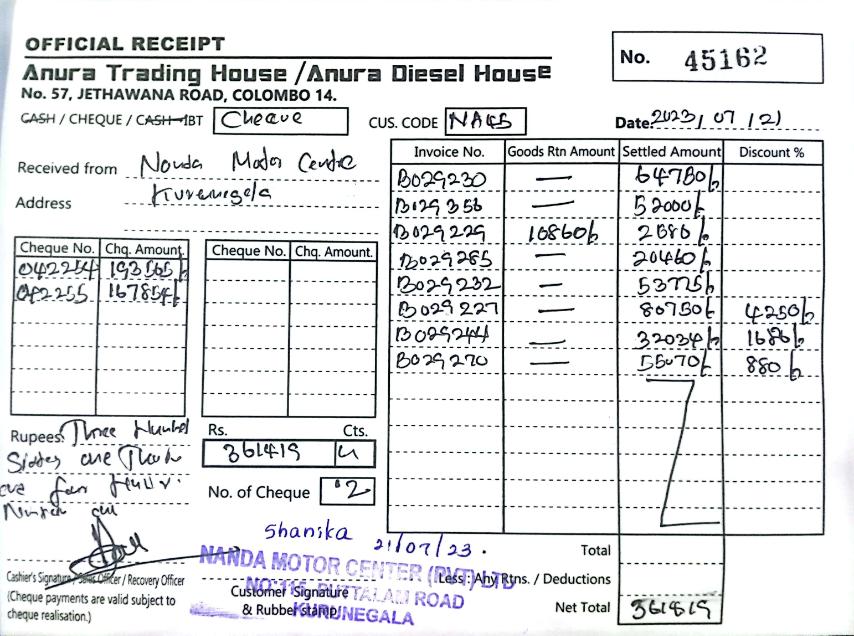 OFFICIAL RECEIPT
No. 45162
Anura Trading House / Anura Diesel House
No. 57, JETHAWANA ROAD, COLOMBO 14.
CASH / CHEQUE / CASH-IBT Cheque CUS. CODE Date: 2023/07/21
Received from Nanda Motor Centre
Address Kurunegala
Invoice No. Goods Rtn Amount Settled Amount Discount %
B029230 — 64780/-
B029356 — 52000/-
B029229 10860/-
B029285 — 20460/-
B029232 — 53775/-
B029227 — 80750/- 4250/-
B029244 — 32034/- 1686/-
B029270 — 880/-
Cheque No. Chq. Amount. Cheque No. Chq. Amount.
042254 193565/-
042255 167854/-
Rupees: Three Hundred
Rs. Cts.
361419
No. of Cheque 2
Shanika
21/07/23.
NANDA MOTOR CENTER (PVT) LTD
NO: 115, PUTTALAM ROAD
KURUNEGALA
Cashier's Signature / Sales Officer / Recovery Officer
(Cheque payments are valid subject to
cheque realisation.)
Customer Signature
& Rubber stamp
Total
Less : Any Rtns. / Deductions
Net Total